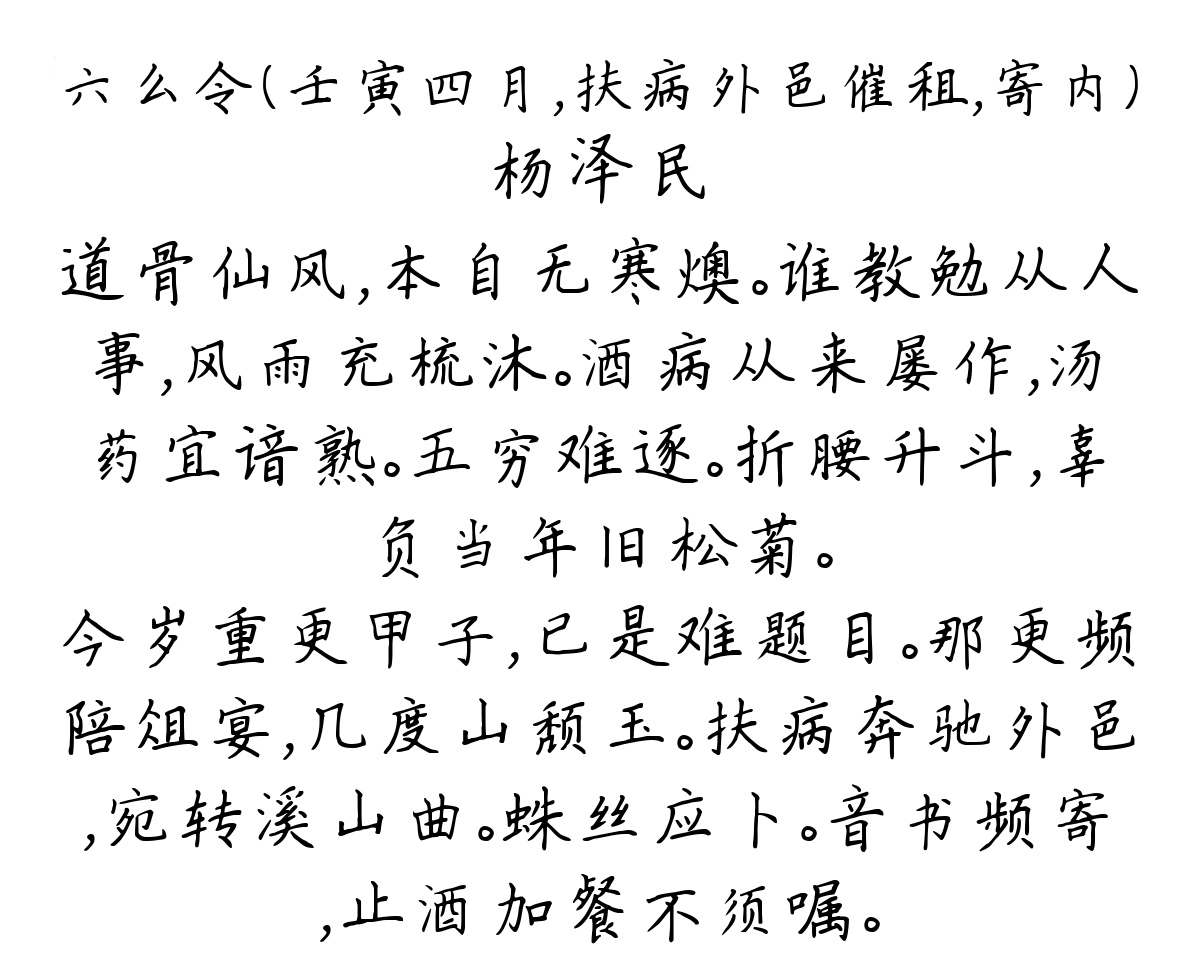 六么令(壬寅四月,扶病外邑催租,寄内)
杨泽民
道骨仙风,本自无寒燠。谁教勉从人
事,风雨充梳沐。酒病从来屡作,汤
药宜谙熟。五穷难逐。折腰升斗,辜
负当年旧松菊。
今岁重更甲子,已是难题目。那更频
陪俎宴,几度山颓玉。扶病奔驰外邑
,宛转溪山曲。蛛丝应卜。音书频寄
,止酒加餐不须嘱。